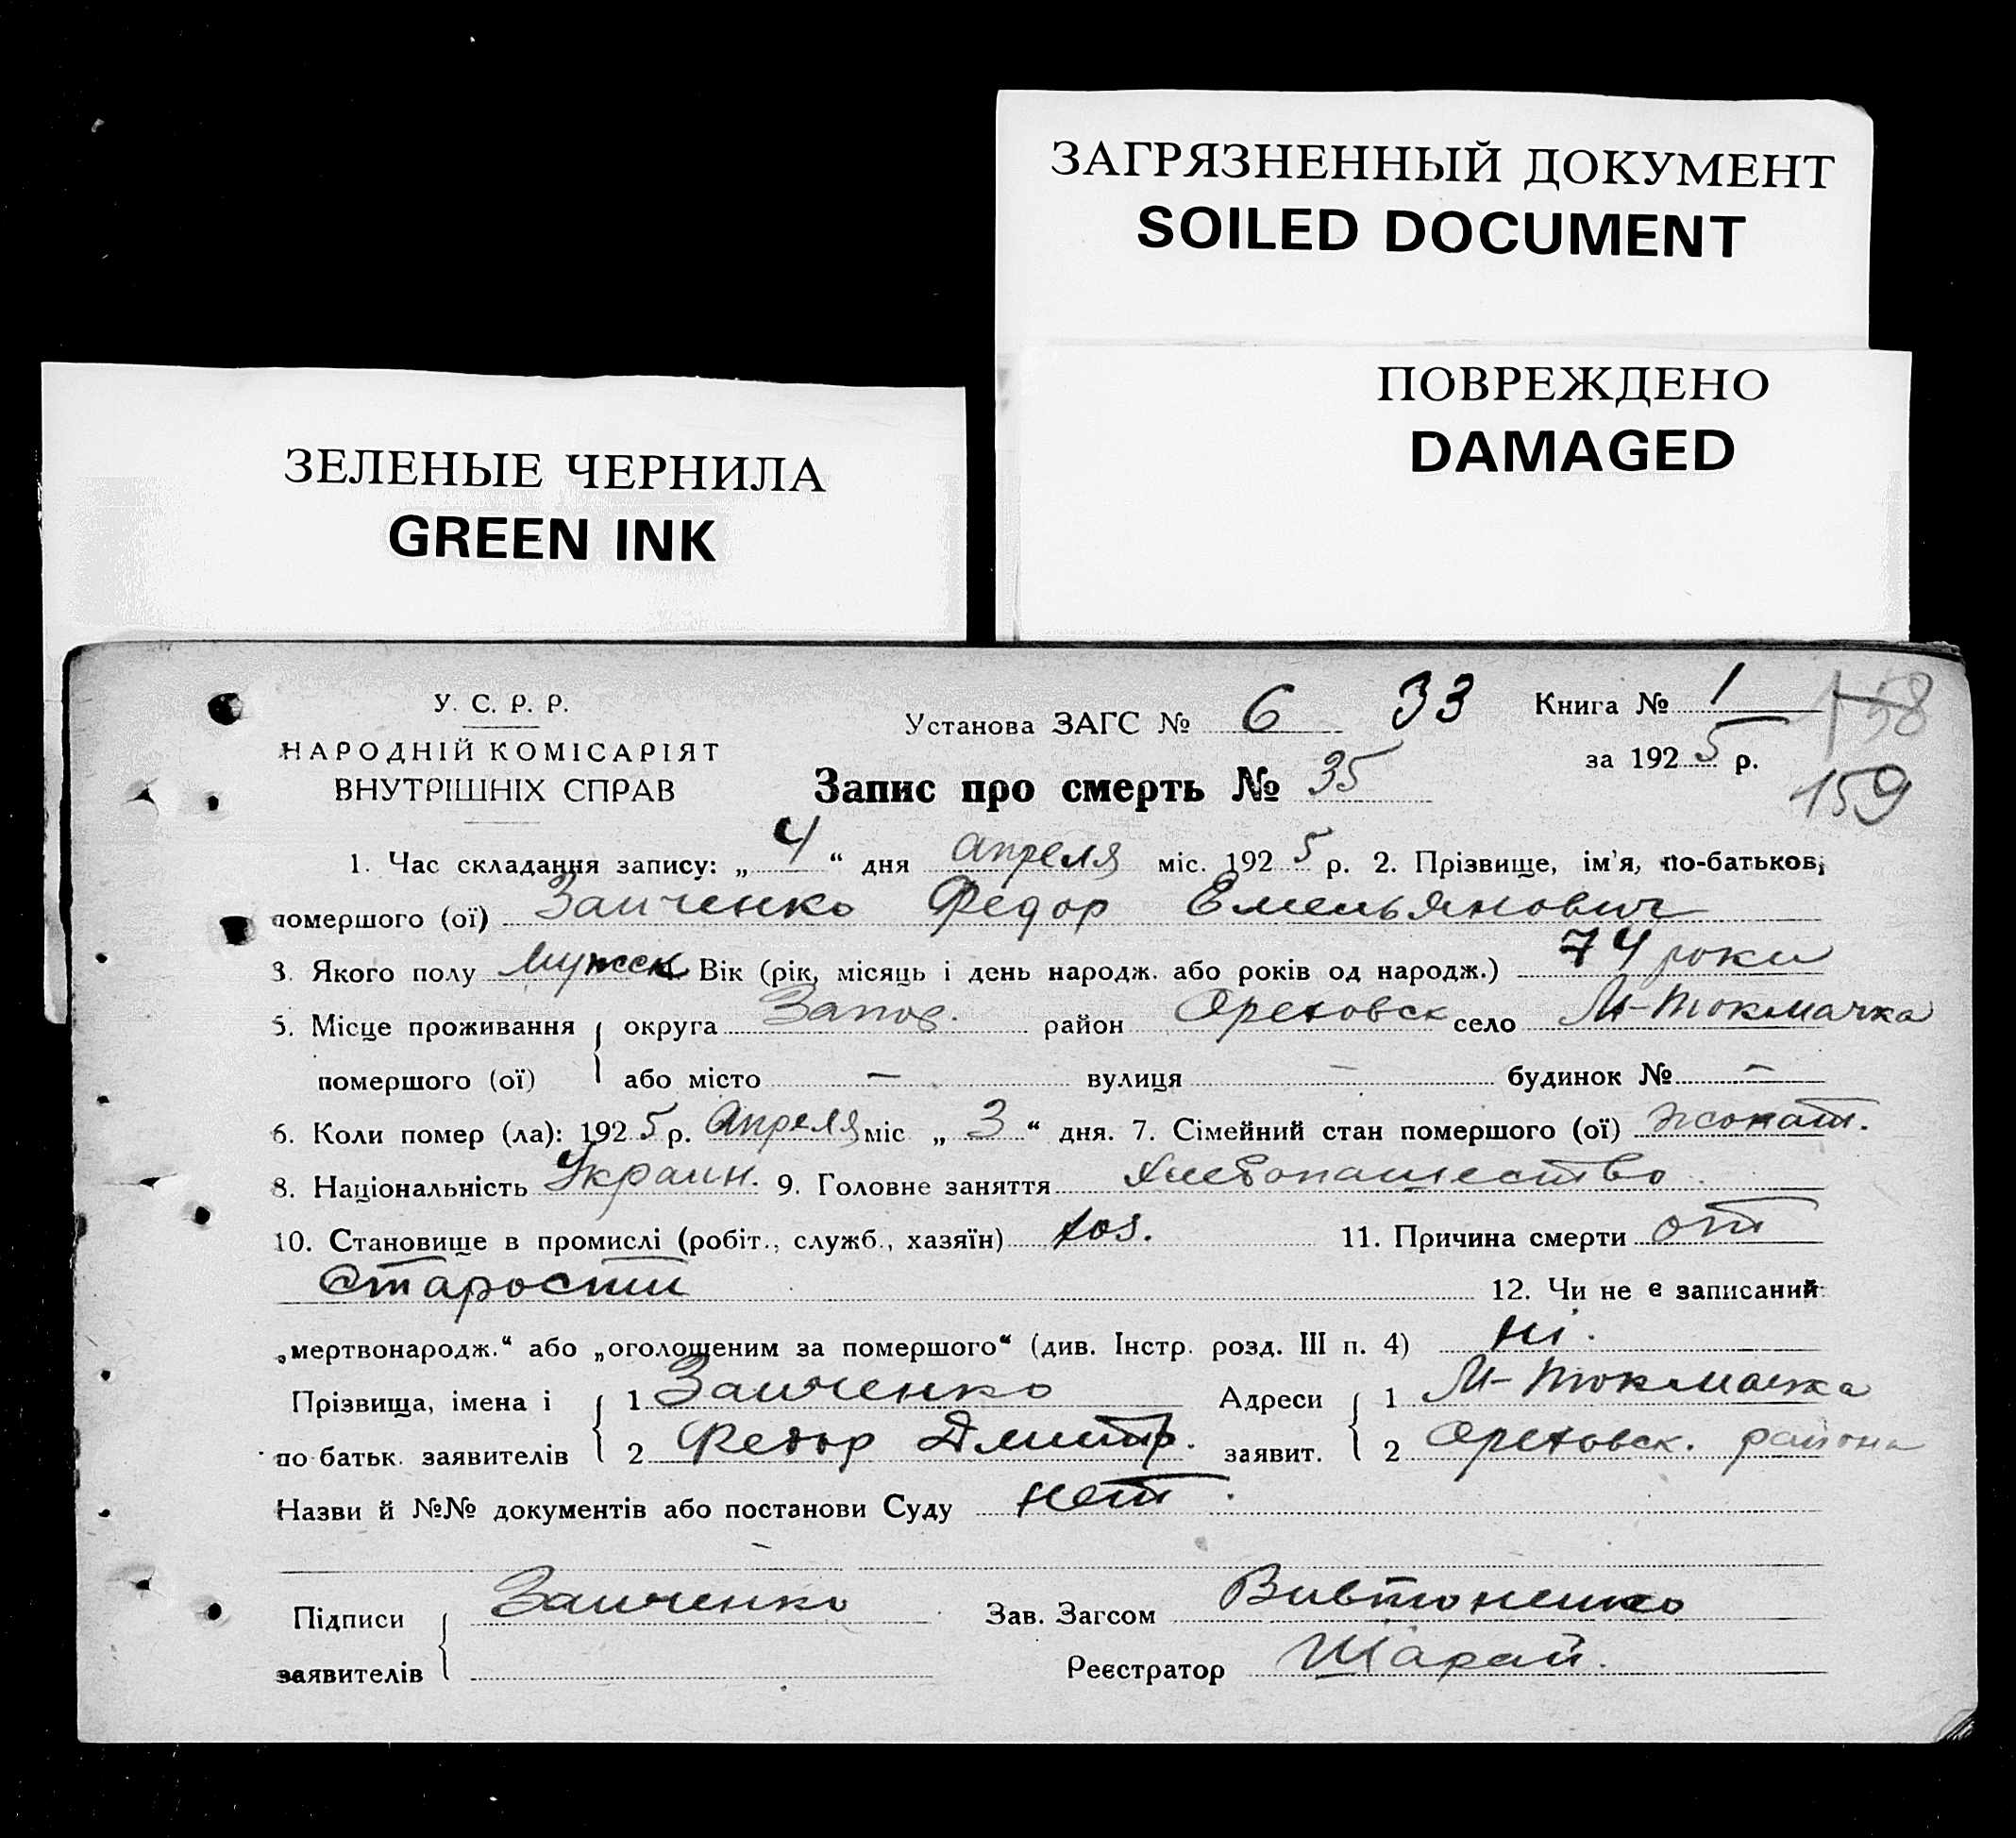 ЗАГРЯЗНЕННЫЙ ДОКУМЕНТ
SOILED DOCUMENT
ПОВРЕЖДЕНО
DAMAGED
ЗЕЛЕНЫЕ ЧЕРНИЛА
GREEN INK
У. С. Р. Р.
НАРОДНІЙ КОМІСАРІЯТ
ВНУТРІШНІХ СПРАВ
Установа ЗАГС № 6 33
Книга № 1 158
за 1925 р.
159
Запис про смерть № 35
1. Час складання запису: „ 4 “ дня апреля міс. 1925 р. 2. Прізвище, ім'я, по-батьков,
помершого (ої) Заиченко Федор Емельянович
3. Якого полу мужск Вік (рік, місяць і день народж. або років од народж.) 74 роки
5. Місце проживання округа Запор. район Ореховск село М-Токмачка
помершого (ої) або місто — вулиця — будинок № —
6. Коли помер (ла): 1925 р. Апреля міс „ 3 “ дня. 7. Сімейний стан помершого (ої) жонат.
8. Національність Украин. 9. Головне заняття Хлебопашество
10. Становище в промислі (робіт., служб., хазяїн) хоз. 11. Причина смерти от
старости 12. Чи не є записаний
„мертвонародж.“ або „оголошеним за помершого“ (див. Інстр. розд. III п. 4) ні.
Прізвища, імена і 1 Заиченко Адреси 1 М-Токмачка
по батьк. заявителів 2 Федор Дмитр. заявит. 2 Ореховск. района
Назви й №№ документів або постанови Суду нет.
Підписи Заиченко Зав. Загсом
заявителів Реєстратор Шарай.